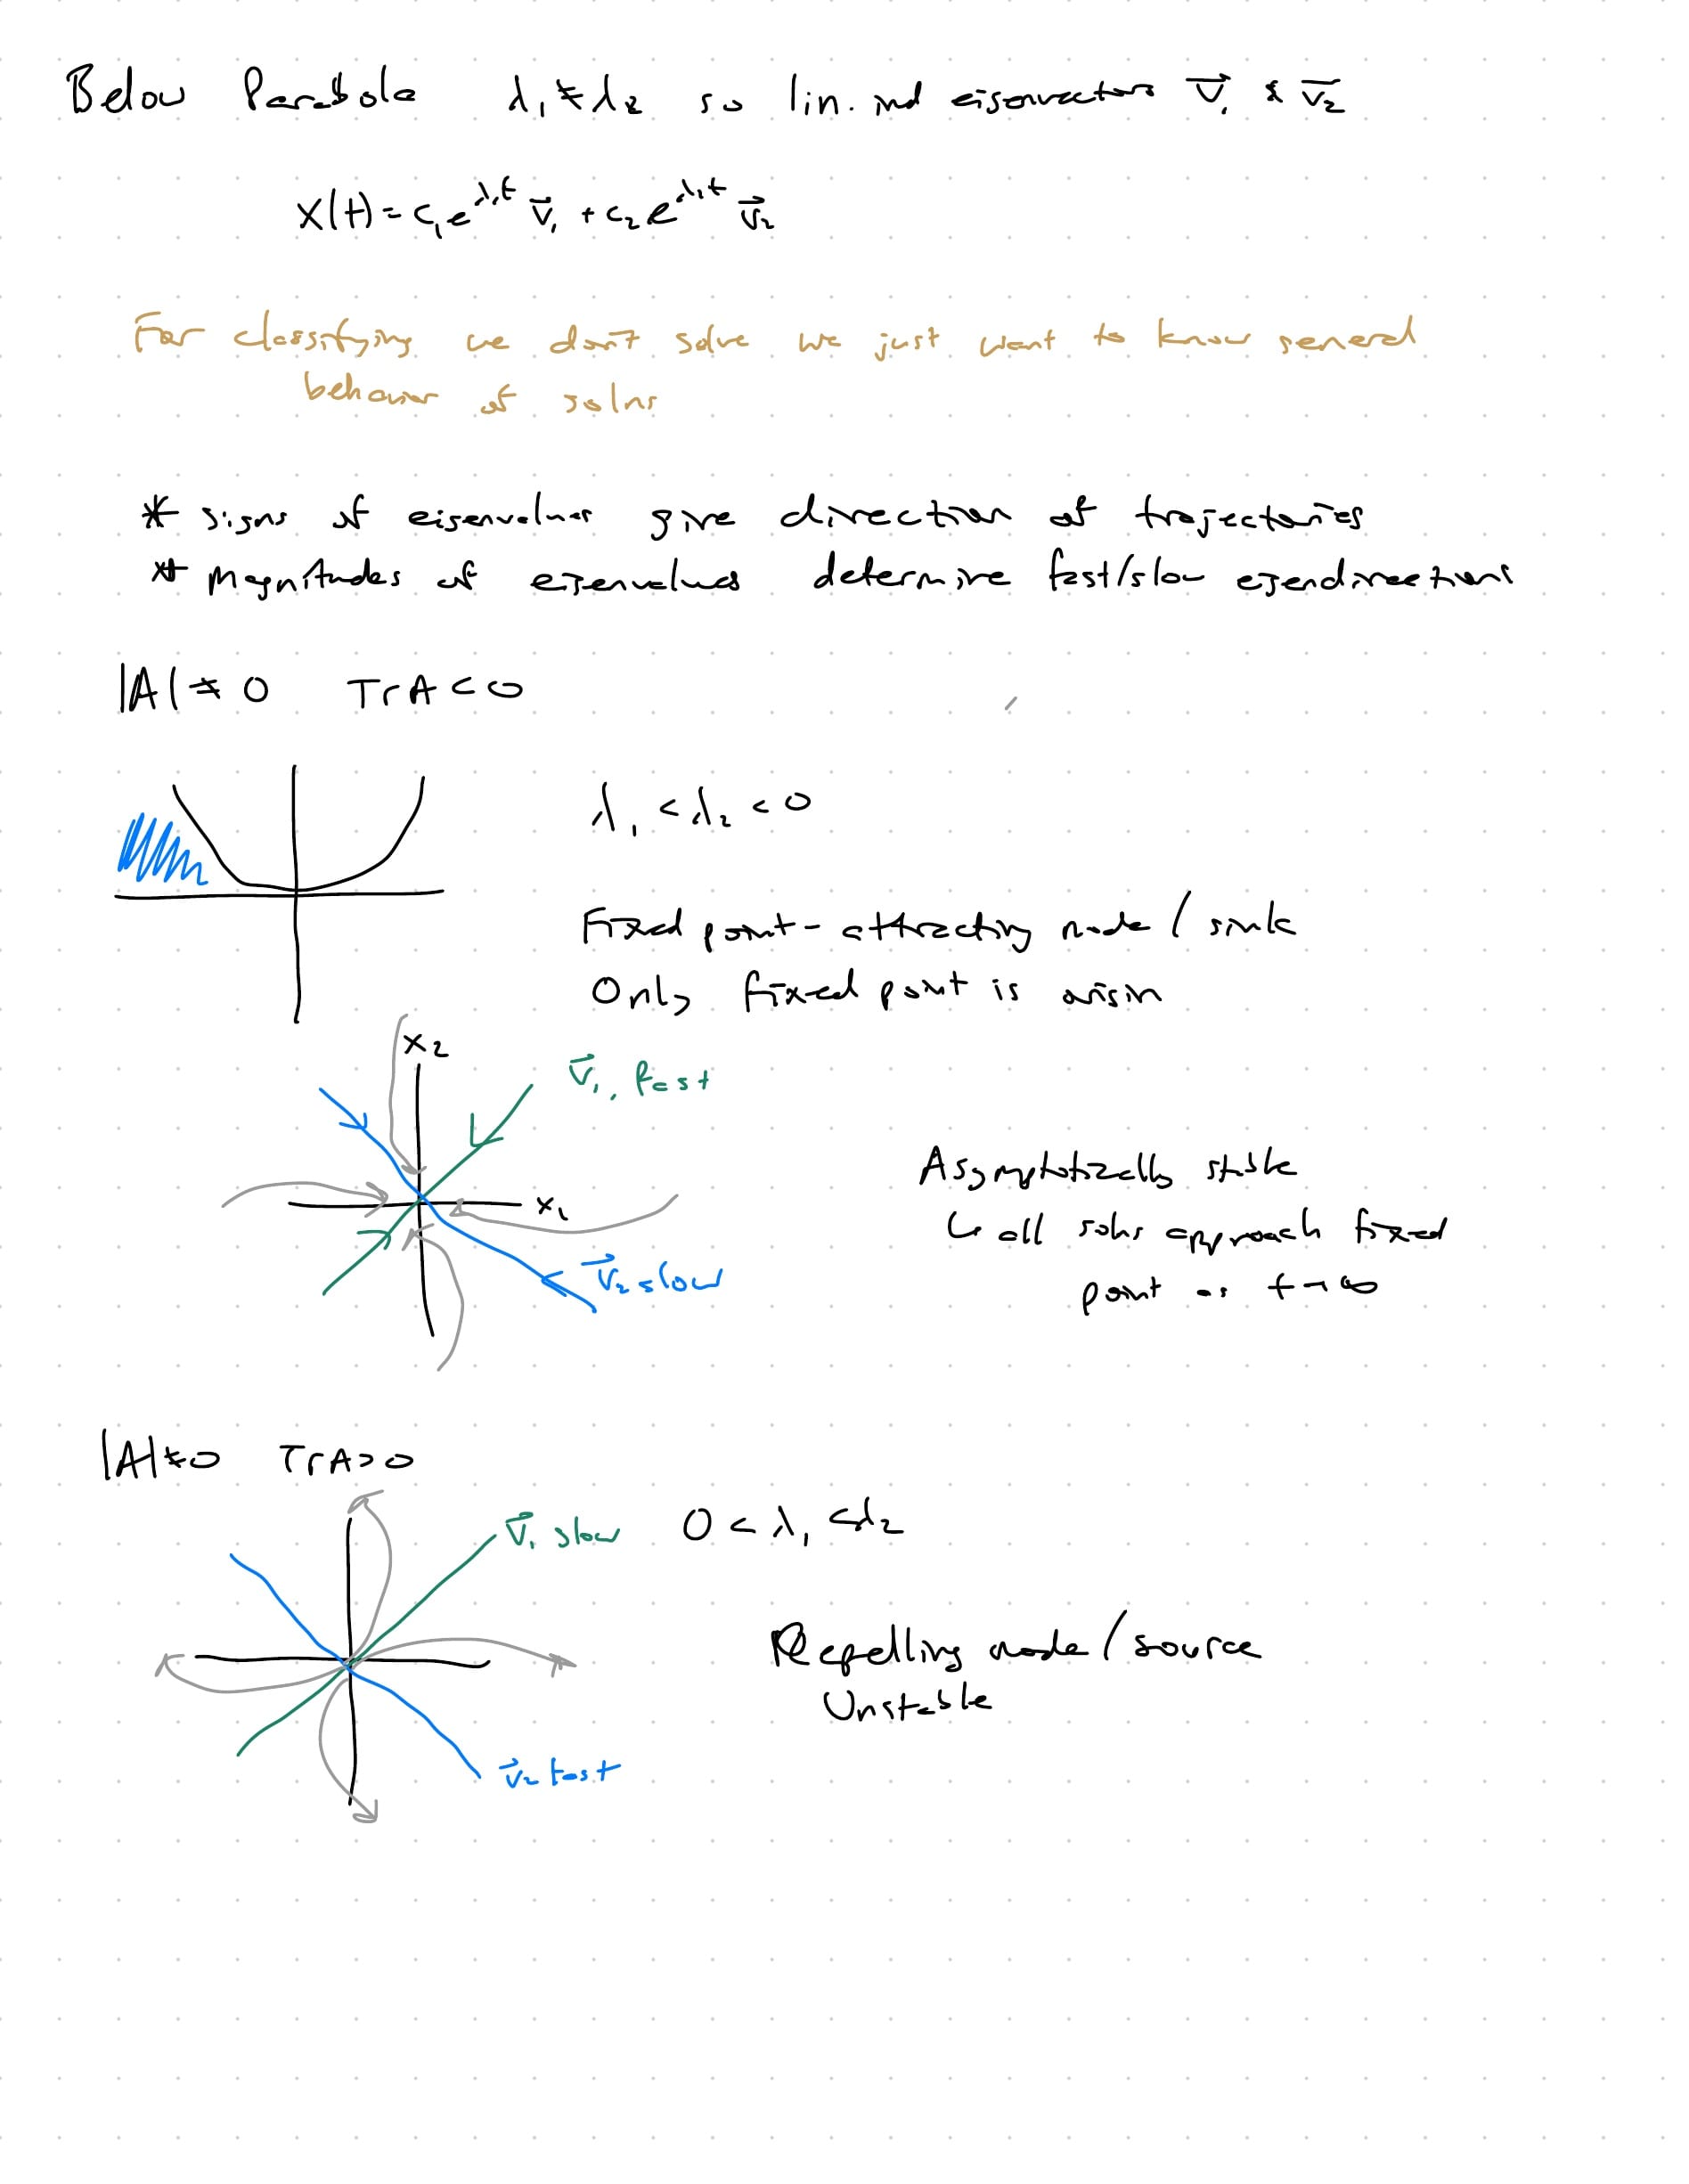 Below Parabola λ₁ ≠ λ₂ so lin. ind eigenvectors v⃗₁ & v⃗₂
x(t) = c₁e^{λ₁t} v⃗₁ + c₂e^{λ₂t} v⃗₂
For classifying we don't solve we just want to know general
behavior of solns
* signs of eigenvalues give direction of trajectories
* Magnitudes of eigenvalues determine fast/slow eigendirections
|A| ≠ 0 TrA < 0
λ₁ < λ₂ < 0
Fixed point - attracting node / sink
Only fixed point is origin
x₂
v⃗₁, fast
x₁
v⃗₂ slow
Asymptotically stable
↳ all solns approach fixed
point as t → ∞
|A| ≠ 0 TrA > 0
v⃗₁ slow
0 < λ₁ < λ₂
Repelling node / source
Unstable
v⃗₂ fast